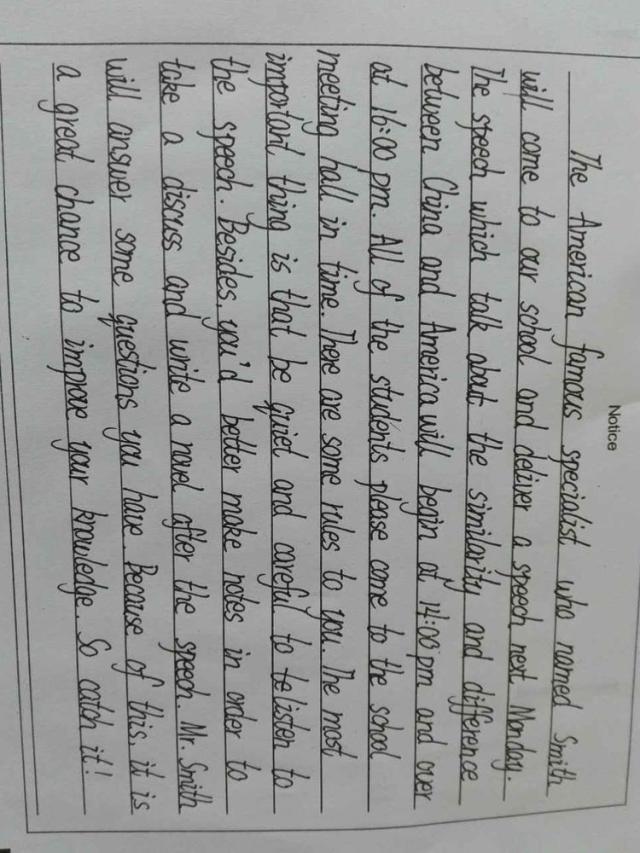 Notice
The American famous specialist who named Smith
will come to our school and deliver a speech next Monday.
The speech which talk about the similarity and difference
between China and America will begin at 14:00 pm and over
at 16:00 pm. All of the students please come to the school
meeting hall in time. There are some rules to you. The most
important thing is that be quiet and careful to listen to
the speech. Besides, you'd better make notes in order to
take a discuss and write a novel after the speech. Mr. Smith
will answer some questions you have. Because of this, it is
a great chance to improve your knowledge. So catch it!